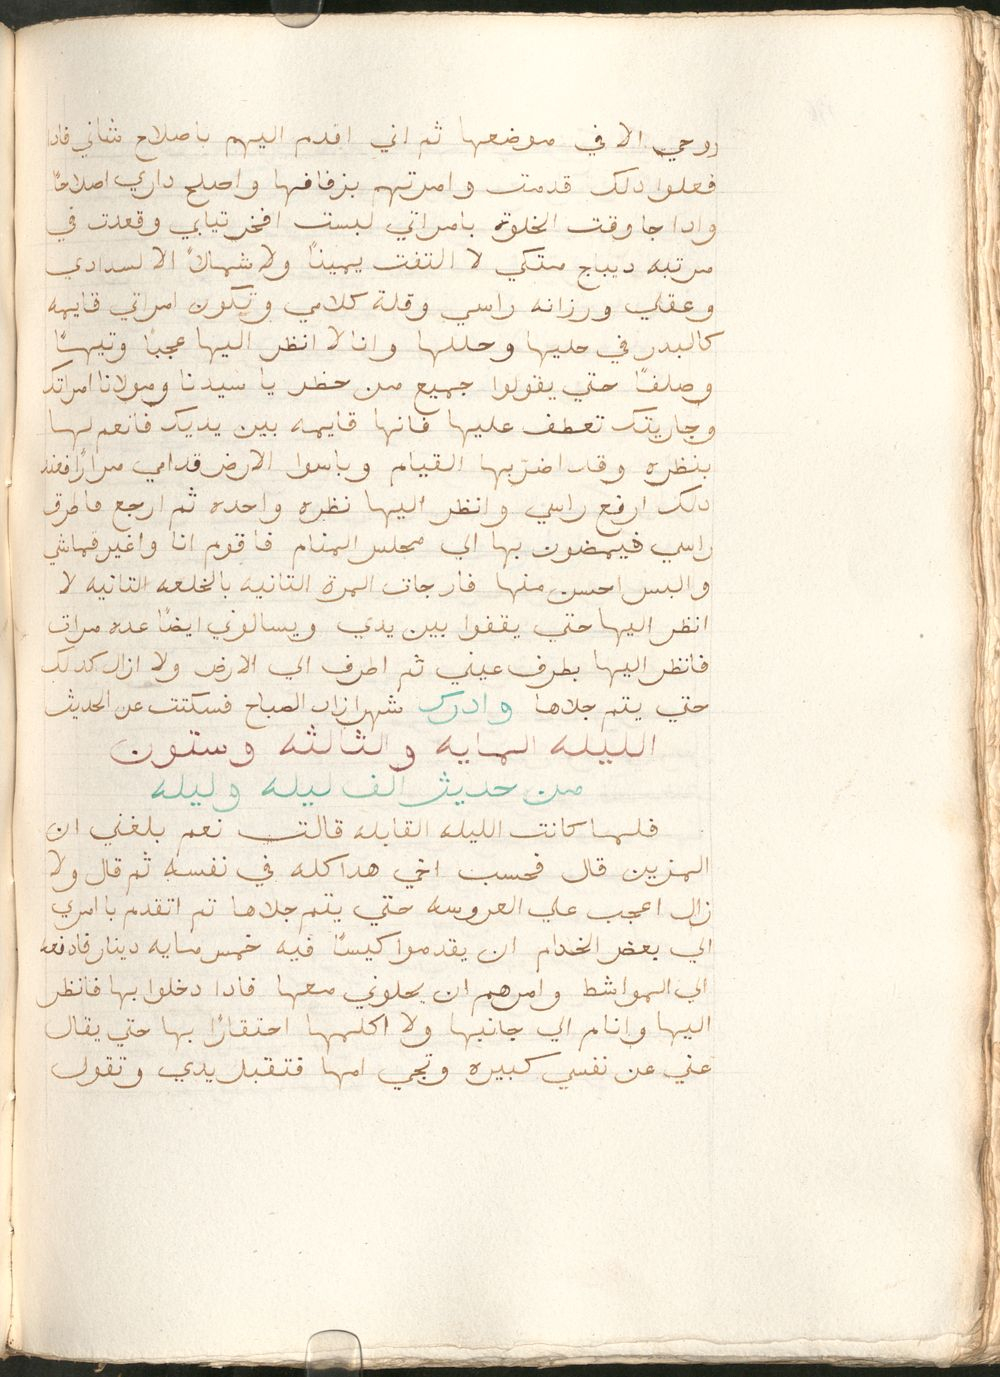 روحي الا في موضعها ثم اني اقدم اليهم باصلاح شاني فادا
فعلوا دلك قدمت وامرتهم بزفافها واصلح داري اصلاحًا
وادا جا وقت الخلوة بامراتي لبست افخر تيابي وقعدت في
مرتبه ديباج متكي لا التفت يمينًا ولا شمالاً الا لسدادي
وعقلي ورزانه راسي وقلة كلامي وتكون امراتي قايمه
كالبدر في حليها وحللها وانا لا انظر اليها عجبًا وتيهًا
وصلفًا حتي يقولوا جميع من حظر يا سيدنا ومولانا امراتك
وجاريتك تعطف عليها فانها قايمه بين يديك فانعم لها
بنظره وقد اضرّ بها القيام وباسوا الارض قدامي مرارًا فعند
دلك ارفع راسي وانظر اليها نظره واحده ثم ارجع فاطرق
راسي فيمضون بها الي مجلس المنام فاقوم انا واغير قماشي
والبس احسن منها فاد جات المرة التانيه بالخلعه التانيه لا
انظر اليها حتي يقفوا بين يدي ويسالوني ايضًا عده مرات
فانظر اليها بطرف عيني ثم اطرف الي الارض ولا ازال كدلك
حتي يتم جلاها وادرك شهرازاد الصباح فسكتت عن الحديث
الليله المايه والثالثه وستون
من حديث الف ليله وليله
فلما كانت الليله القابله قالت نعم بلغني ان
المزين قال فحسب اخي هدا كله في نفسه ثم قال ولا
زال اعجب علي العروسه حتي يتم جلاها تم اتقدم باامري
الي بعض الخدام ان يقدموا كيسًا فيه خمس مايه دينار فادفعه
الي المواشط وامرهم ان يخلوني معها فادا دخلوا بها فانظر
اليها وانام الي جانبها ولا اكلمها احتقارًا بها حتي يقال
عني عن نفسي كبيره وتجي امها فتقبل يدي وتقول